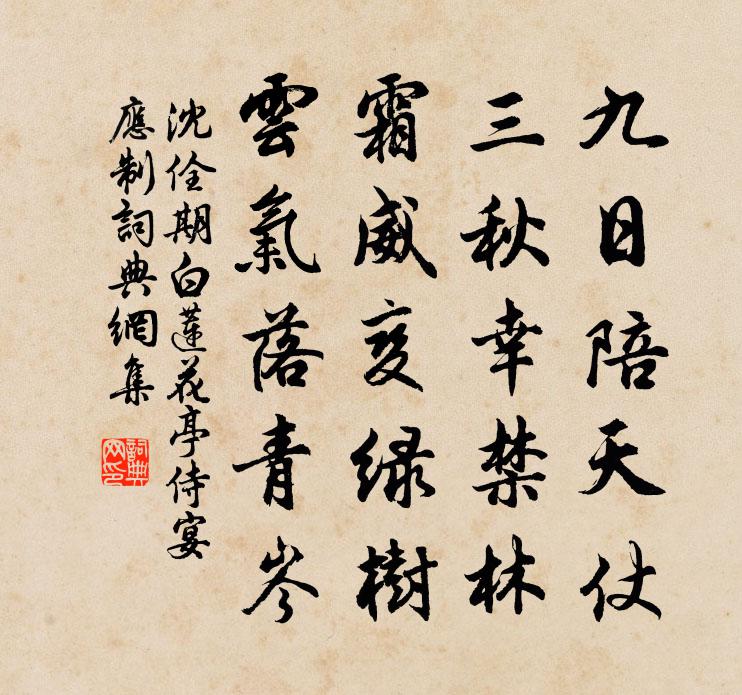 九日陪天仗
三秋幸禁林
霜威变绿樹
雲氣落青岑
沈佺期白蓮花亭侍宴
應制詞典網集
詞典网印